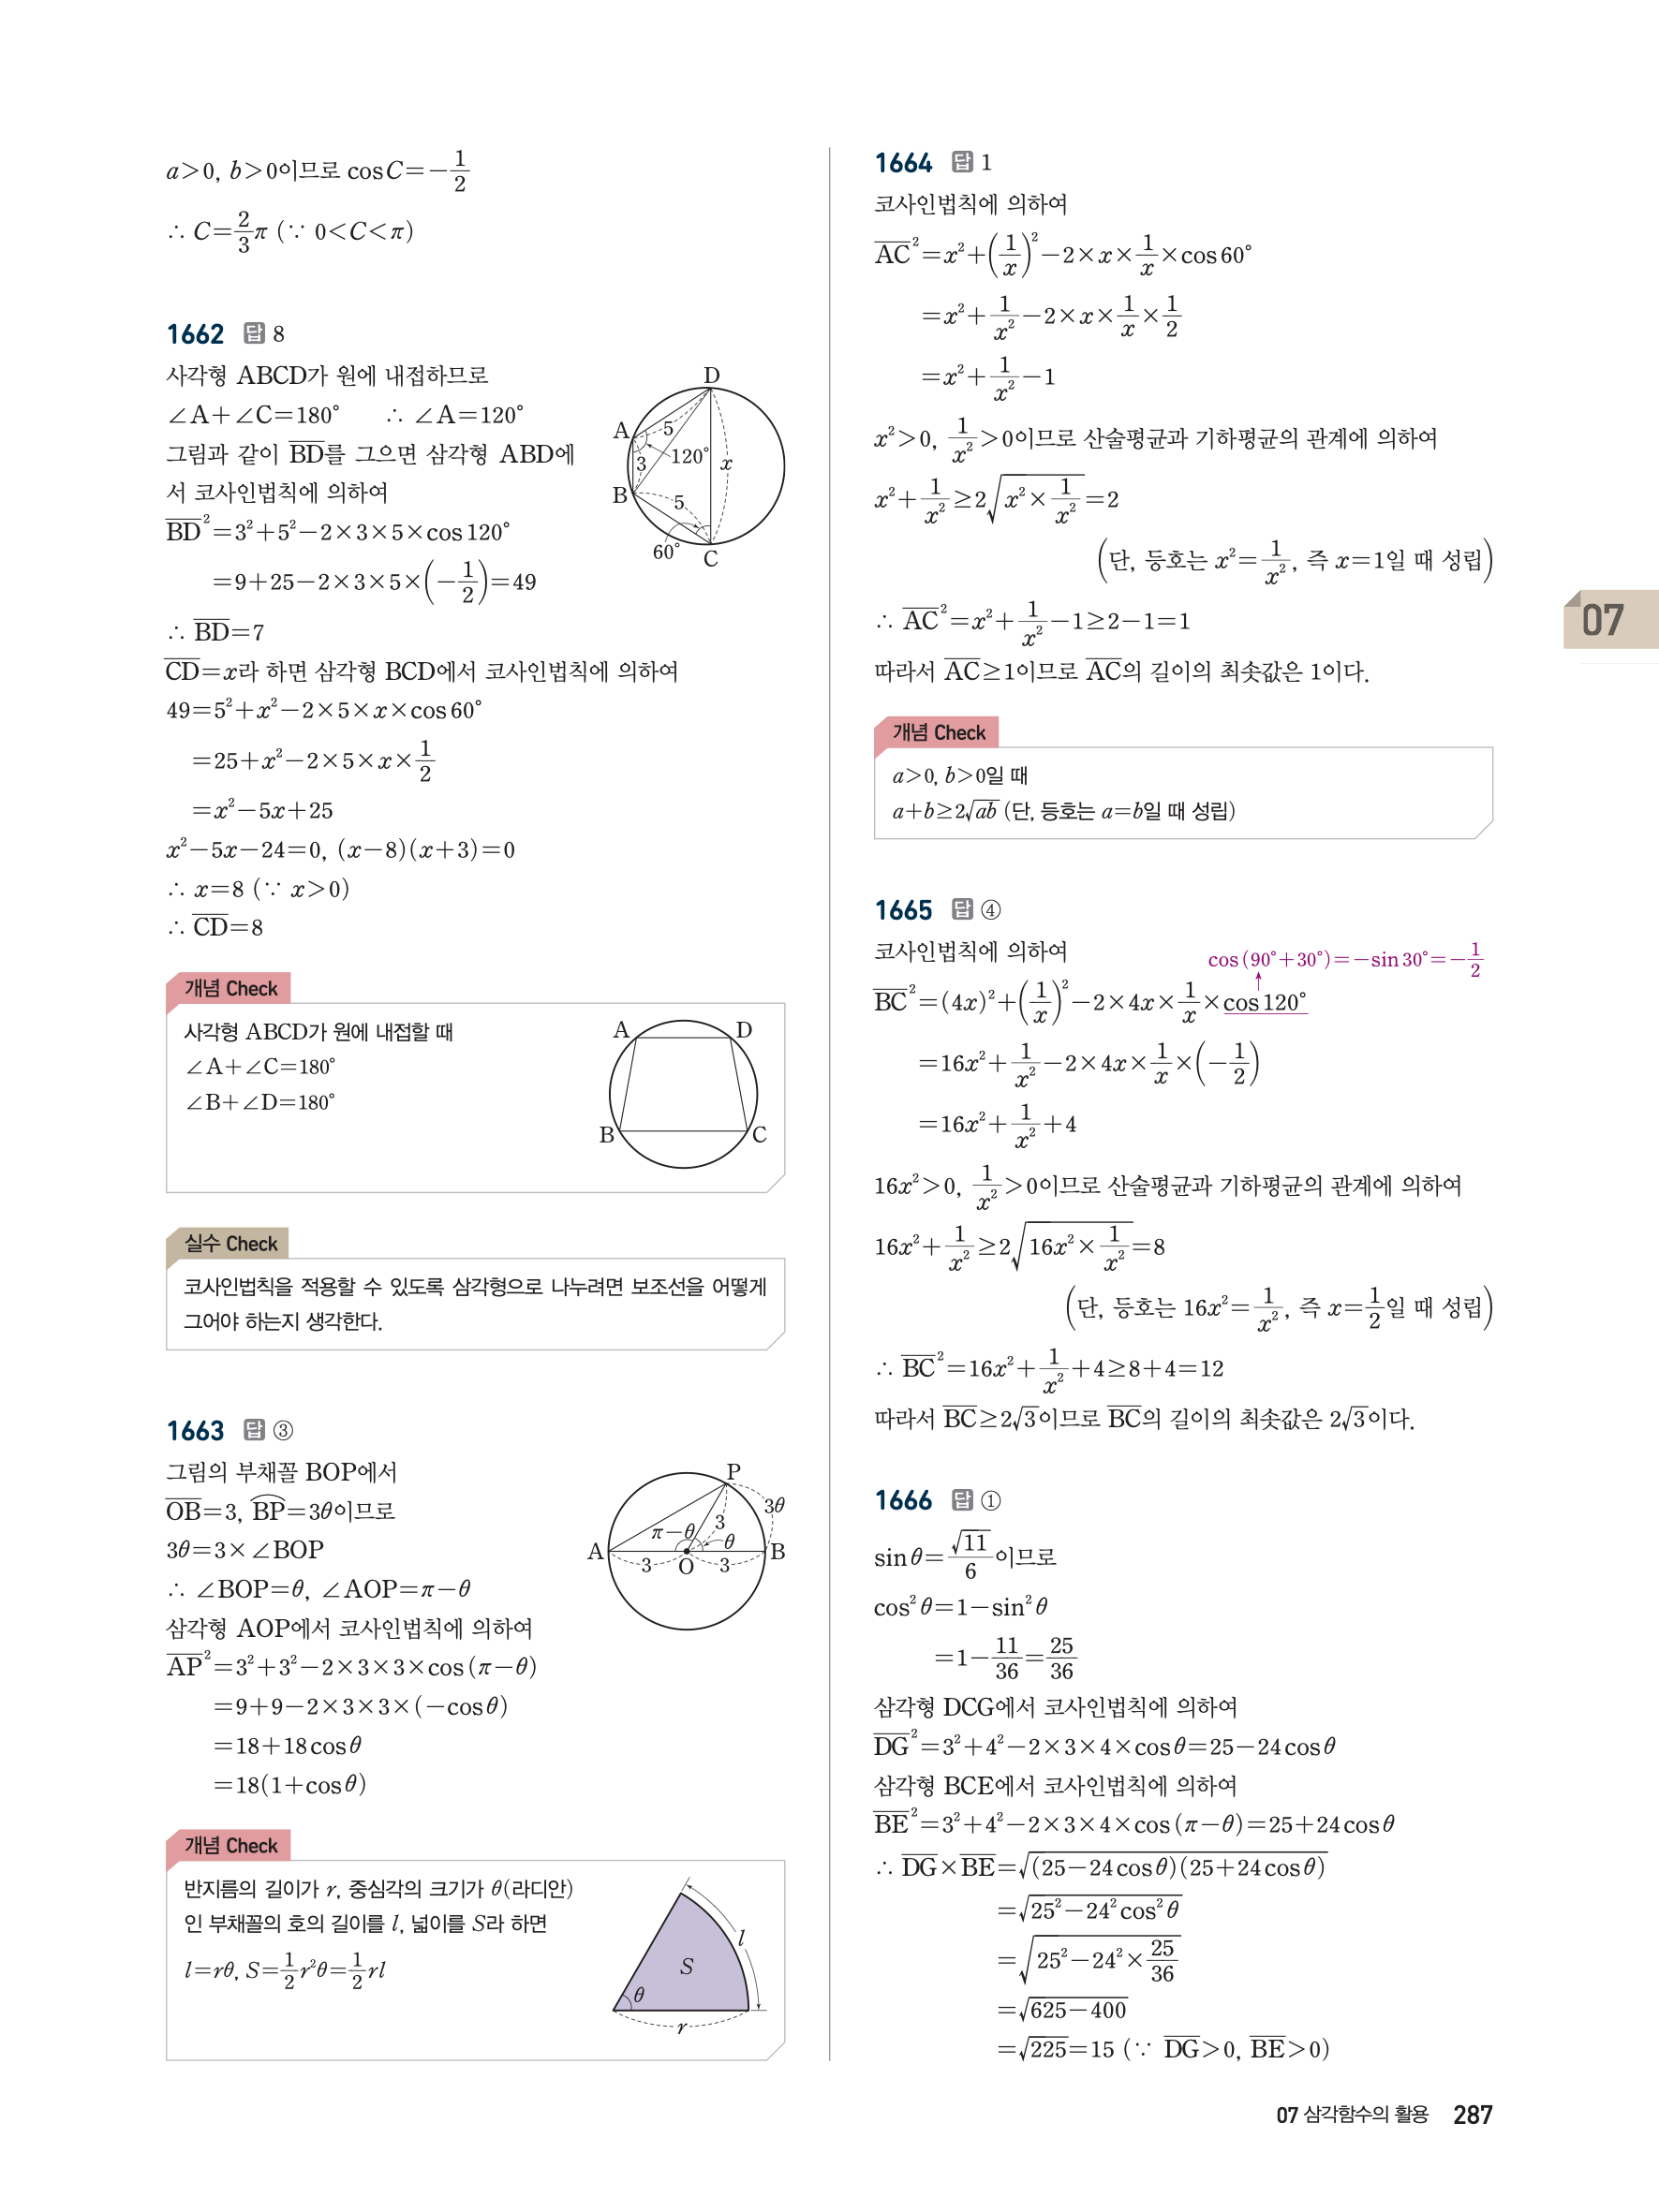 a>0, b>0이므로 cos C=-1/2
∴ C=2/3π (∵ 0<C<π)
1662 답 8
사각형 ABCD가 원에 내접하므로
∠A+∠C=180° ∴ ∠A=120°
그림과 같이 B̅D̅를 그으면 삼각형 ABD에
서 코사인법칙에 의하여
B̅D̅²=3²+5²-2×3×5×cos 120°
=9+25-2×3×5×(-1/2)=49
∴ B̅D̅=7
D
A
5
3
120°
x
B
5
60°
C
C̅D̅=x라 하면 삼각형 BCD에서 코사인법칙에 의하여
49=5²+x²-2×5×x×cos 60°
=25+x²-2×5×x×1/2
=x²-5x+25
x²-5x-24=0, (x-8)(x+3)=0
∴ x=8 (∵ x>0)
∴ C̅D̅=8
개념 Check
사각형 ABCD가 원에 내접할 때
∠A+∠C=180°
∠B+∠D=180°
A D
B C
실수 Check
코사인법칙을 적용할 수 있도록 삼각형으로 나누려면 보조선을 어떻게
그어야 하는지 생각한다.
1663 답 ③
그림의 부채꼴 BOP에서
O̅B̅=3, B͡P=3θ이므로
3θ=3×∠BOP
∴ ∠BOP=θ, ∠AOP=π-θ
삼각형 AOP에서 코사인법칙에 의하여
A̅P̅²=3²+3²-2×3×3×cos (π-θ)
=9+9-2×3×3×(-cos θ)
=18+18 cos θ
=18(1+cos θ)
P
3θ
π-θ 3 θ
A B
3 O 3
개념 Check
반지름의 길이가 r, 중심각의 크기가 θ(라디안)
인 부채꼴의 호의 길이를 l, 넓이를 S라 하면
l=rθ, S=1/2r²θ=1/2rl
l
S
θ
r
1664 답 1
코사인법칙에 의하여
A̅C̅²=x²+(1/x)²-2×x×1/x×cos 60°
=x²+1/x²-2×x×1/x×1/2
=x²+1/x²-1
x²>0, 1/x²>0이므로 산술평균과 기하평균의 관계에 의하여
x²+1/x²≥2√(x²×1/x²)=2
(단, 등호는 x²=1/x², 즉 x=1일 때 성립)
∴ A̅C̅²=x²+1/x²-1≥2-1=1
따라서 A̅C̅≥1이므로 A̅C̅의 길이의 최솟값은 1이다.
개념 Check
a>0, b>0일 때
a+b≥2√ab (단, 등호는 a=b일 때 성립)
1665 답 ④
코사인법칙에 의하여
cos (90°+30°)=-sin 30°=-1/2
B̅C̅²=(4x)²+(1/x)²-2×4x×1/x×cos 120°
=16x²+1/x²-2×4x×1/x×(-1/2)
=16x²+1/x²+4
16x²>0, 1/x²>0이므로 산술평균과 기하평균의 관계에 의하여
16x²+1/x²≥2√(16x²×1/x²)=8
(단, 등호는 16x²=1/x², 즉 x=1/2일 때 성립)
∴ B̅C̅²=16x²+1/x²+4≥8+4=12
따라서 B̅C̅≥2√3이므로 B̅C̅의 길이의 최솟값은 2√3이다.
1666 답 ①
sin θ=√11/6이므로
cos² θ=1-sin² θ
=1-11/36=25/36
삼각형 DCG에서 코사인법칙에 의하여
D̅G̅²=3²+4²-2×3×4×cos θ=25-24 cos θ
삼각형 BCE에서 코사인법칙에 의하여
B̅E̅²=3²+4²-2×3×4×cos (π-θ)=25+24 cos θ
∴ D̅G̅×B̅E̅=√((25-24 cos θ)(25+24 cos θ))
=√(25²-24² cos² θ)
=√(25²-24²×25/36)
=√(625-400)
=√225=15 (∵ D̅G̅>0, B̅E̅>0)
07
07 삼각함수의 활용 287